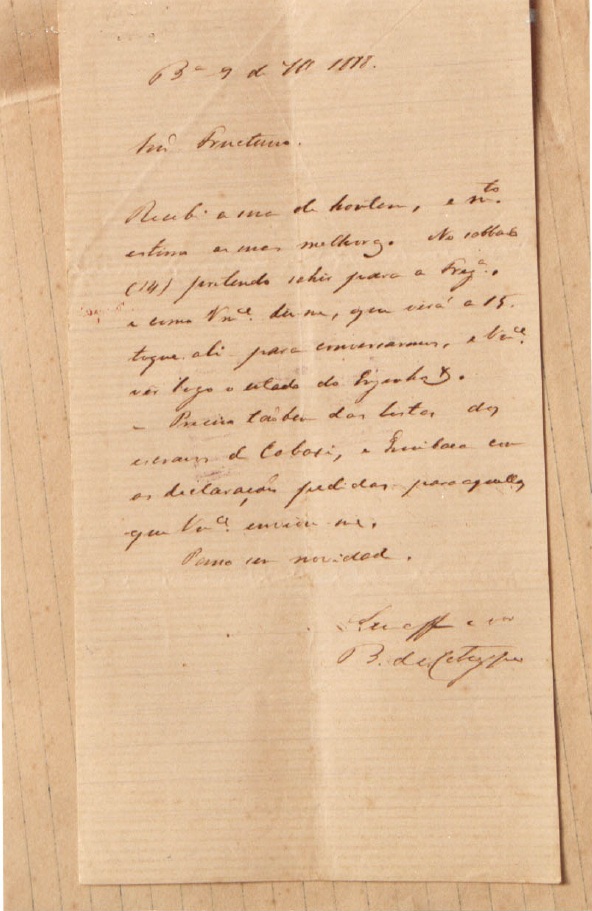 Bª 9 de 7br 1888.
Snr. Fructuoso.
Recebi a sua de hontem, e mto.
estimo as suas melhoras. No sabbado
(14) pretendo sahir para a Fregª.
e como Vmcê. diz-me, que virá a 15.
toque ali para conversarmos, e Vmcê.
ver logo o estado do Engenho.
- Preciso também das listas dos
escravos de Cobaxi, e com
as declarações pedidas para aquelles
que Vmcê. enviou-me.
Passo sem novidade.
Seu affº
B. de Cotegipe